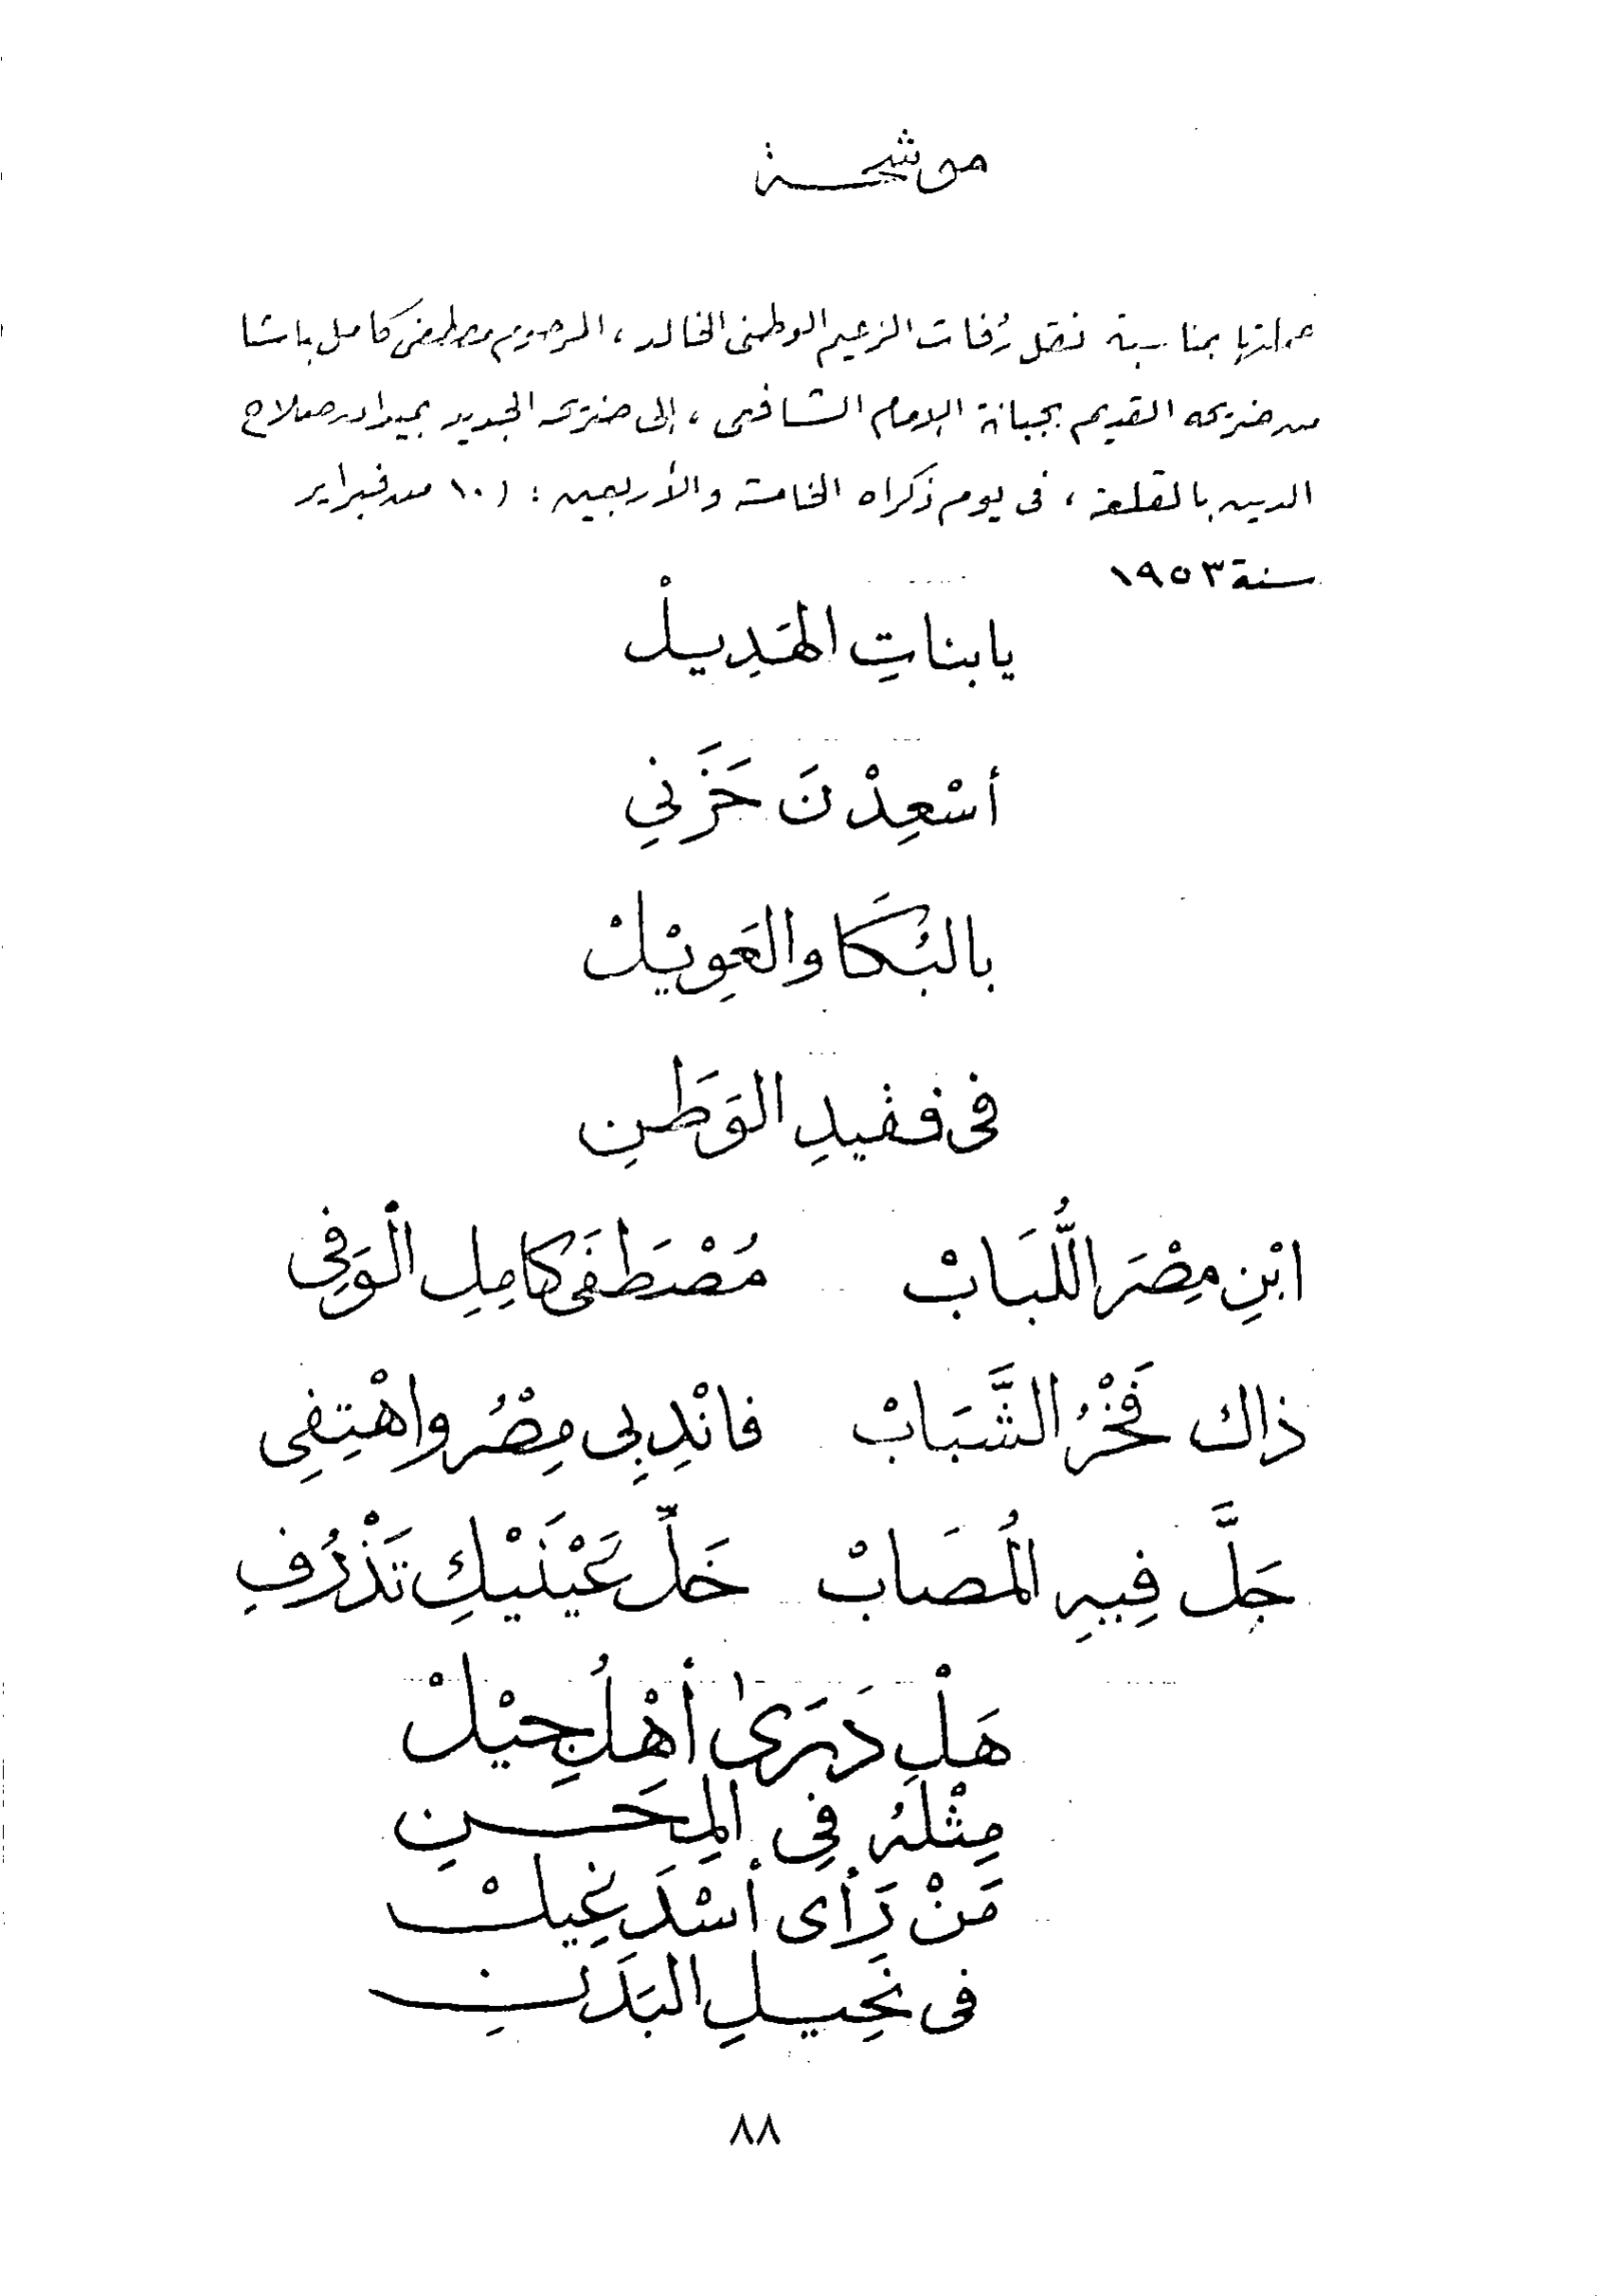 موشحة
عملتها بمناسبة نقل رُفات الزعيم الوطنى الخالد، المرحوم مصطفى كامل باشا
من ضريحه القديم بجبانة الإمام الشافعى، إلى ضريحه الجديد بميدان صلاح
الدين بالقلعة، فى يوم ذكراه الخامسة والأربعين: (١٠ من فبراير
سنة ١٩٥٣
يا بناتِ الهَدِيلْ
أسْعِدْنَ حَزَنِي
بالبُكَا والعَوِيْلْ
فى فقيدِ الوَطَنِ
ابْنِ مِصْرَ اللُّبَابْ مُصْطَفَى كامِلِ الْوَفِي
ذاك فَخْرُ الشَّبَابْ فانْدِبِى مِصْرُ واهْتِفِي
جَلَّ فِيهِ المُصَابْ خَلِّ عَيْنَيْكِ تَذْرُفِ
هَلْ دَرَىٰ أهْلُ جِيْلْ
مِثْلَهُ فِي المِحَنِ
مَنْ رَأى أسْدَ غِيلْ
فى نَحِيلِ البَدَنِ
٨٨